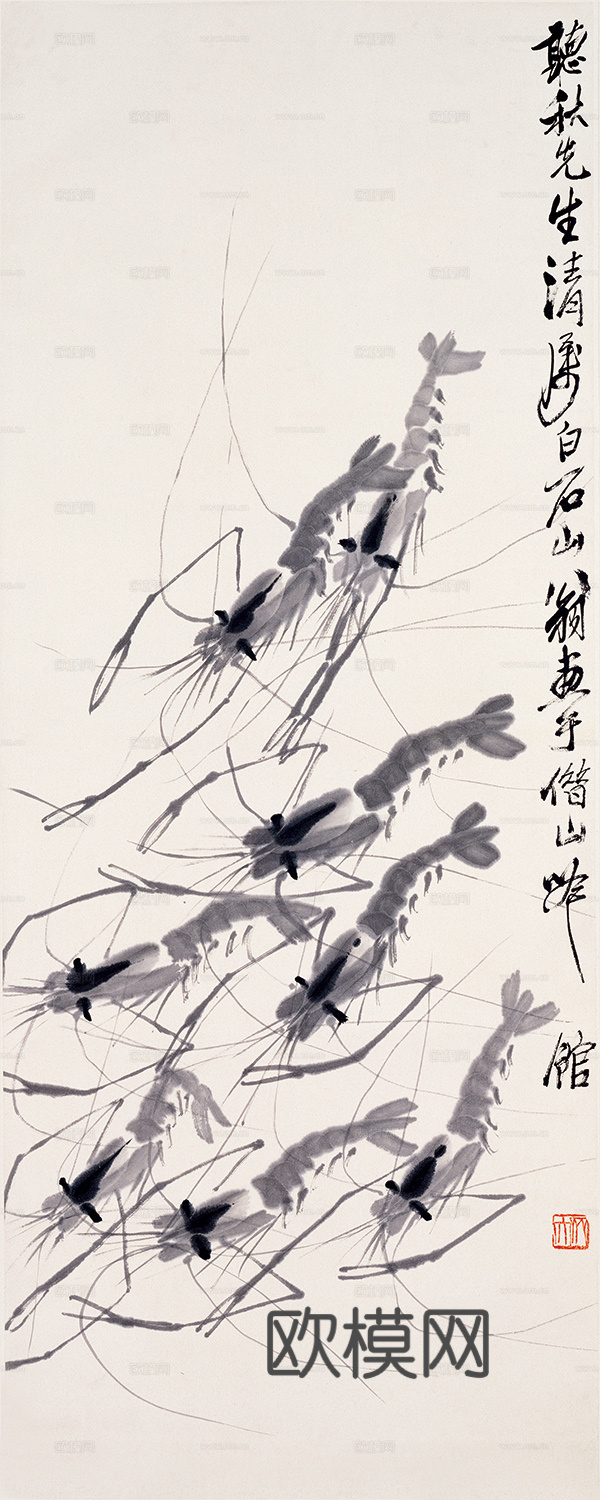 聽秋先生清屬白石山翁畫于借山吟館
欧模网